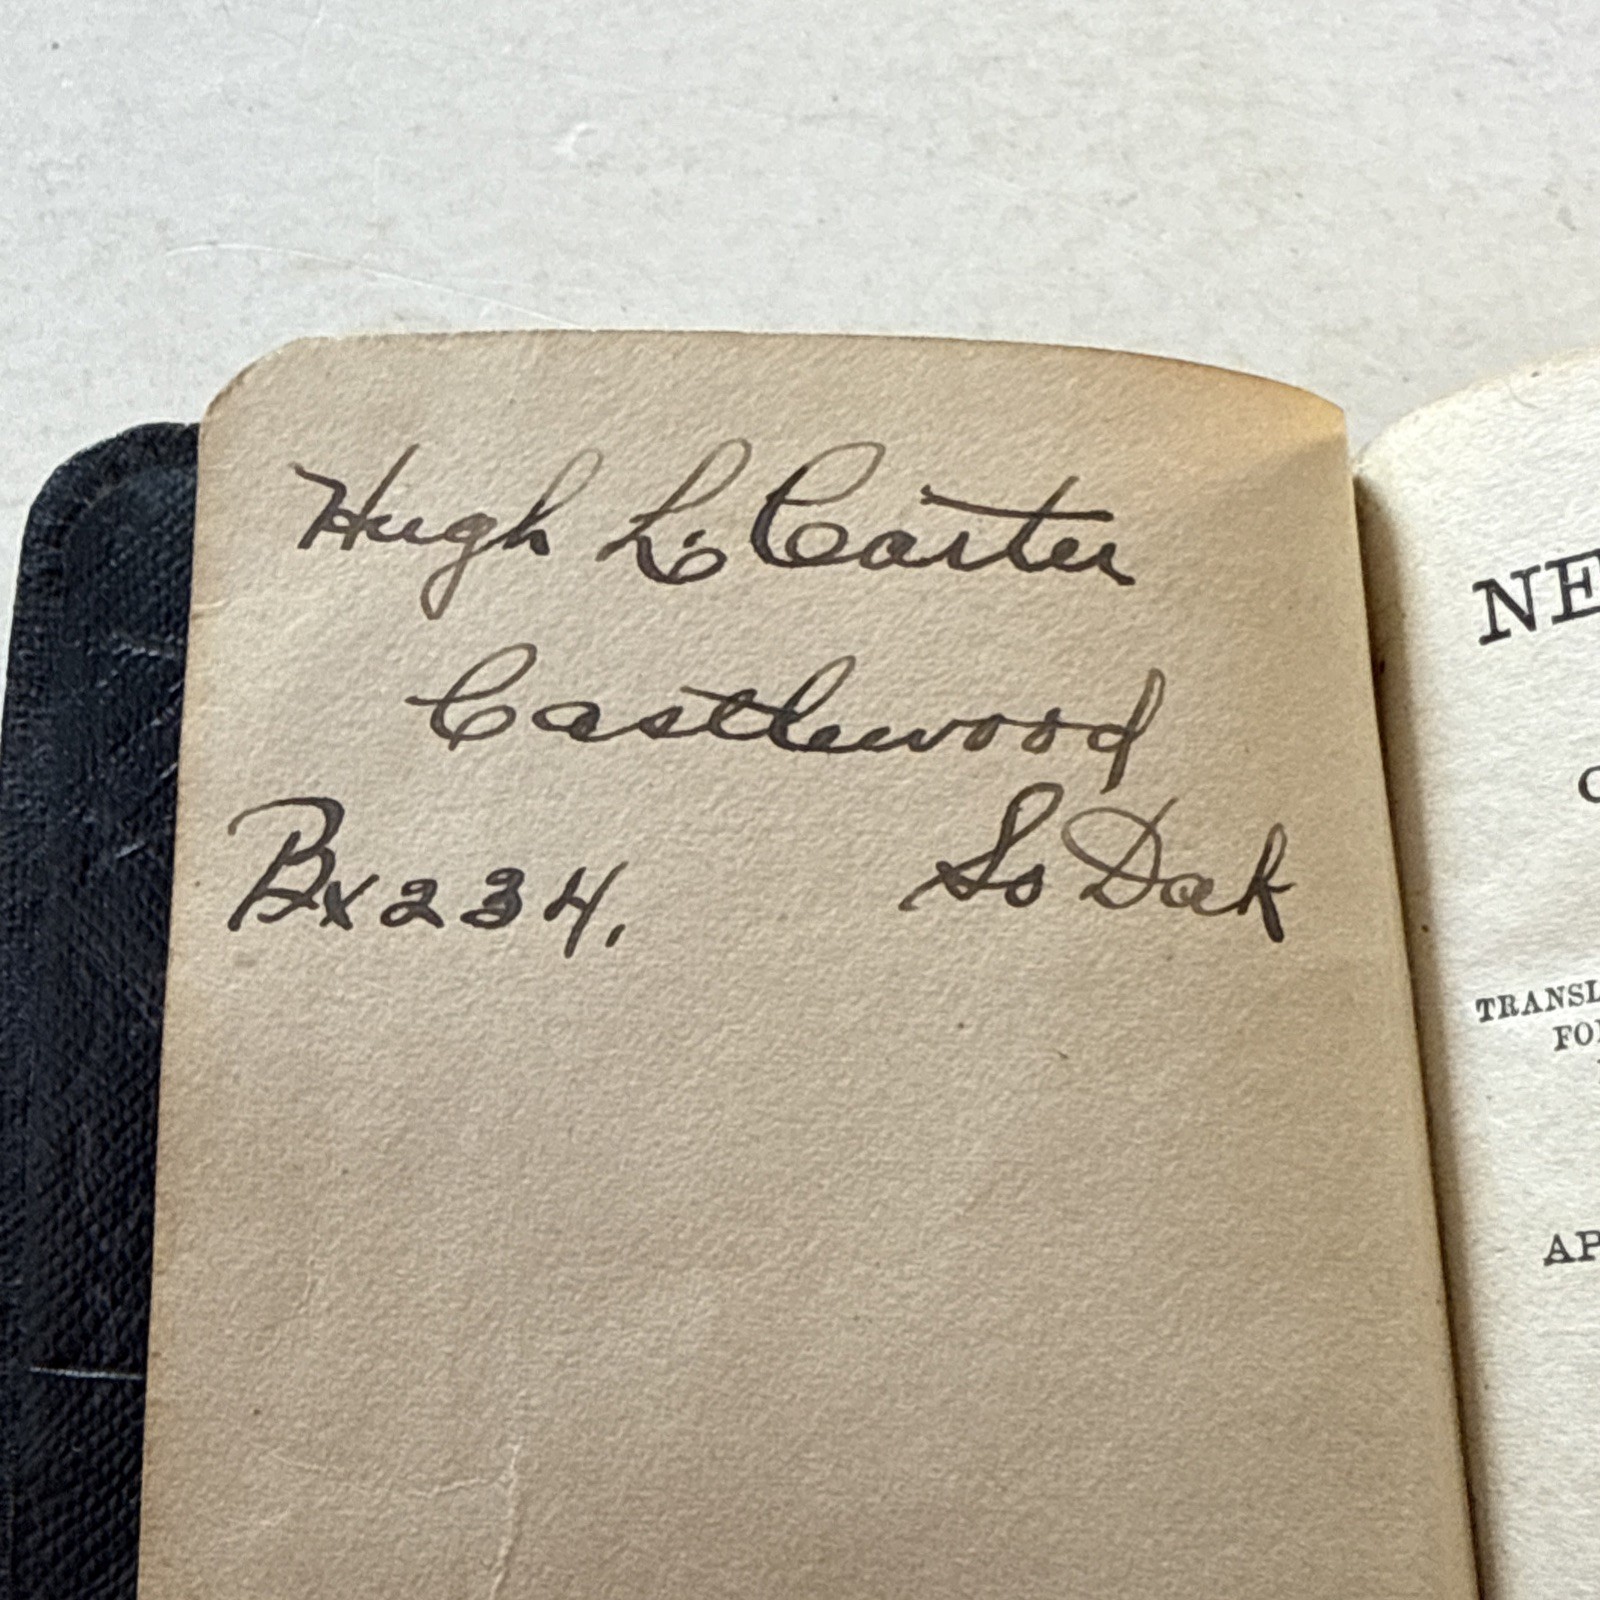 Hugh L. Carter
Castlewood
Bx 234. So Dak
NE
TRANSL
FO
AP